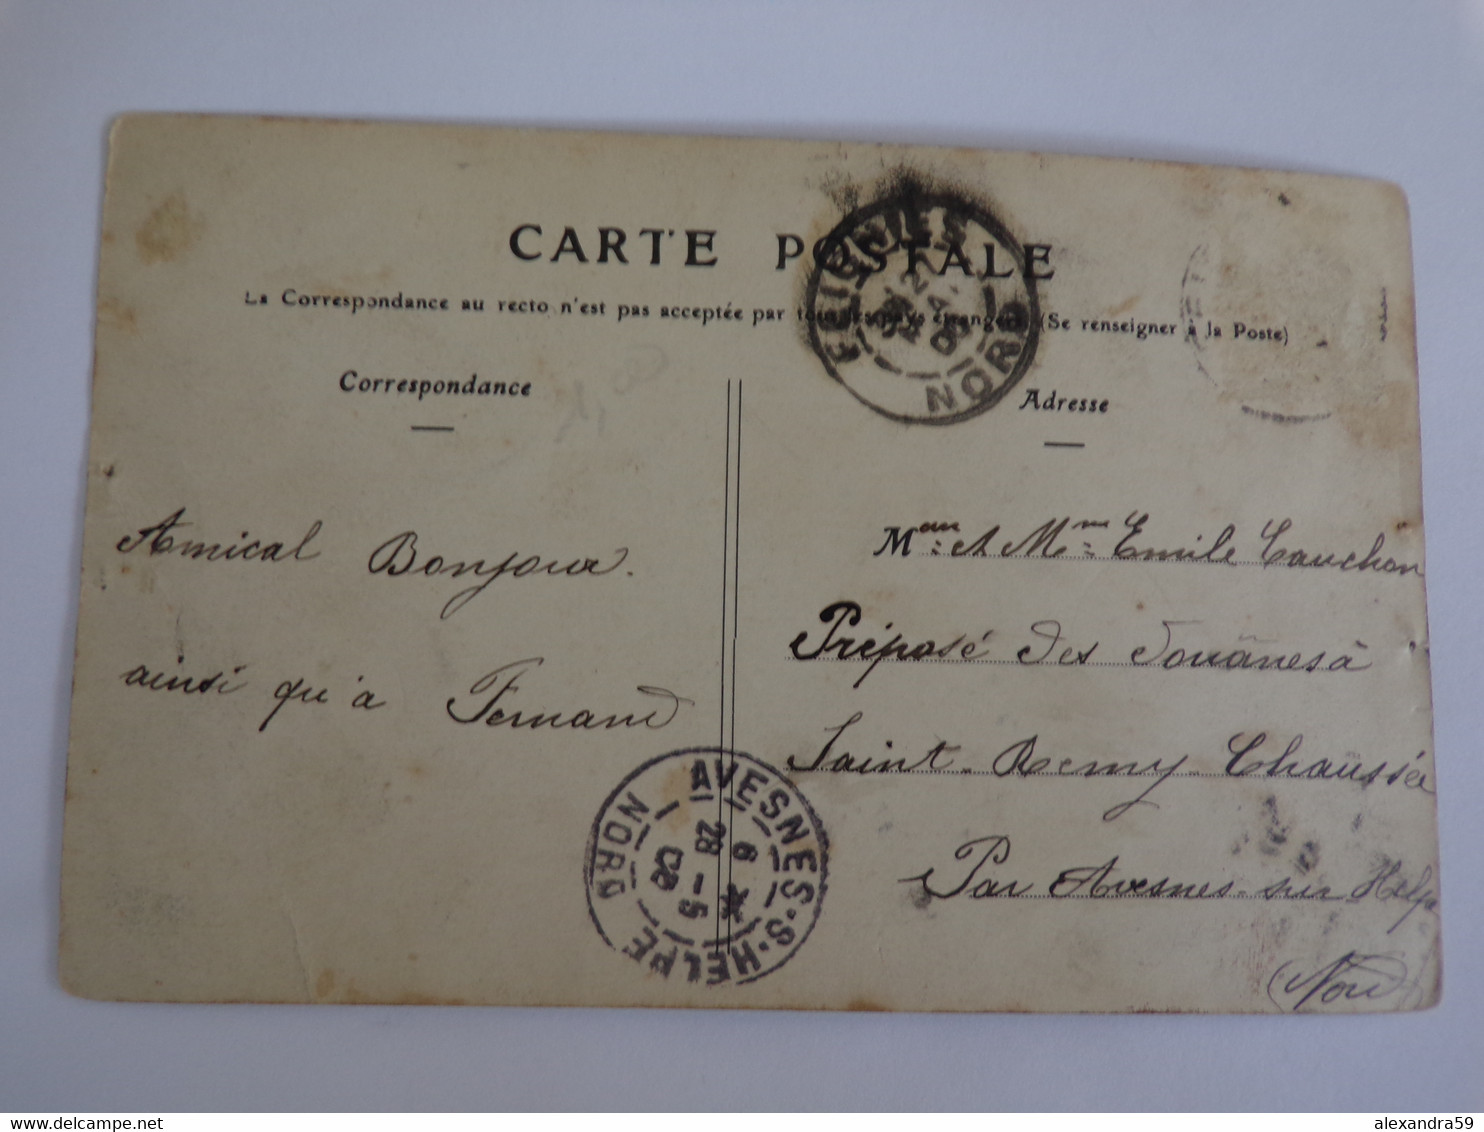 CARTE POSTALE
La Correspondance au recto n'est pas acceptée par tous les pays étrangers (Se renseigner à la Poste)
FEIGNIES
NORD
Correspondance
Adresse
Amical Bonjour.
ainsi qu'à Fernand
M et Mme Emile Cauchon
Préposé des Douanes à
Saint-Remy-Chaussée
Par Avesnes-sur Helpe
(Nord)
AVESNES-S-HELPE
NORD
6
28 - 5
08
delcampe.net
alexandra59